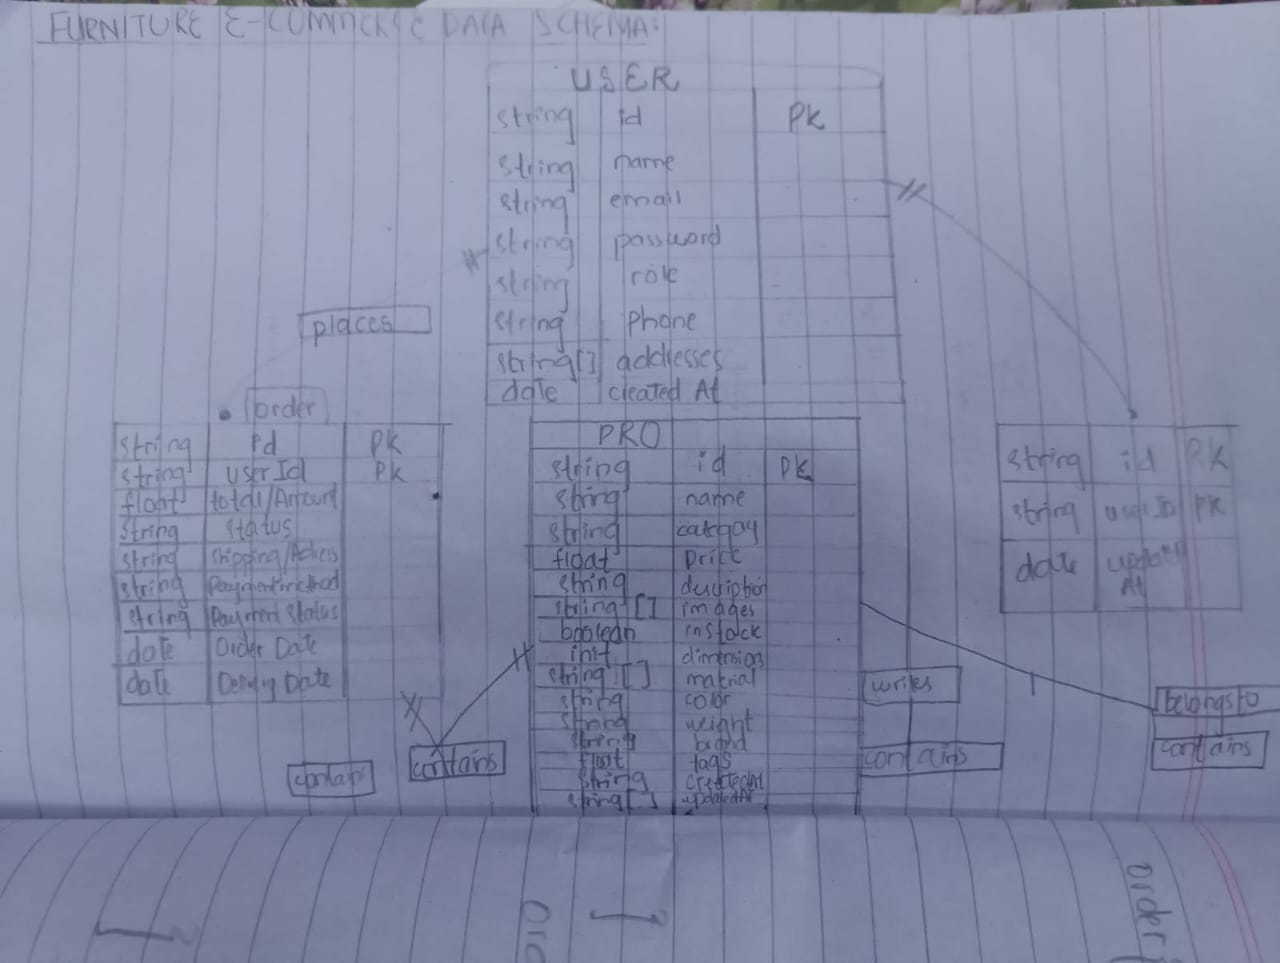 FURNITURE E-COMMERCE DATA SCHEMA:
USER
string id PK
string name
string email
string password
string role
string phone
string[] addresses
date created At
places
order
string Id PK
string userId PK
float total/Amount
string status
string shipping/Adress
string Paymentmethod
string Payment status
date Order Date
date Date
PRO
string id PK
string name
string category
float price
string description
string [] images
boolean instock
init dimension
string [] matrial
string color
string weight
string brand
float tags
string createdAt
string[ ] updatedAt
string id PK
string userID PK
date At
contains
contains
writes
contains
belongsto
contains
order